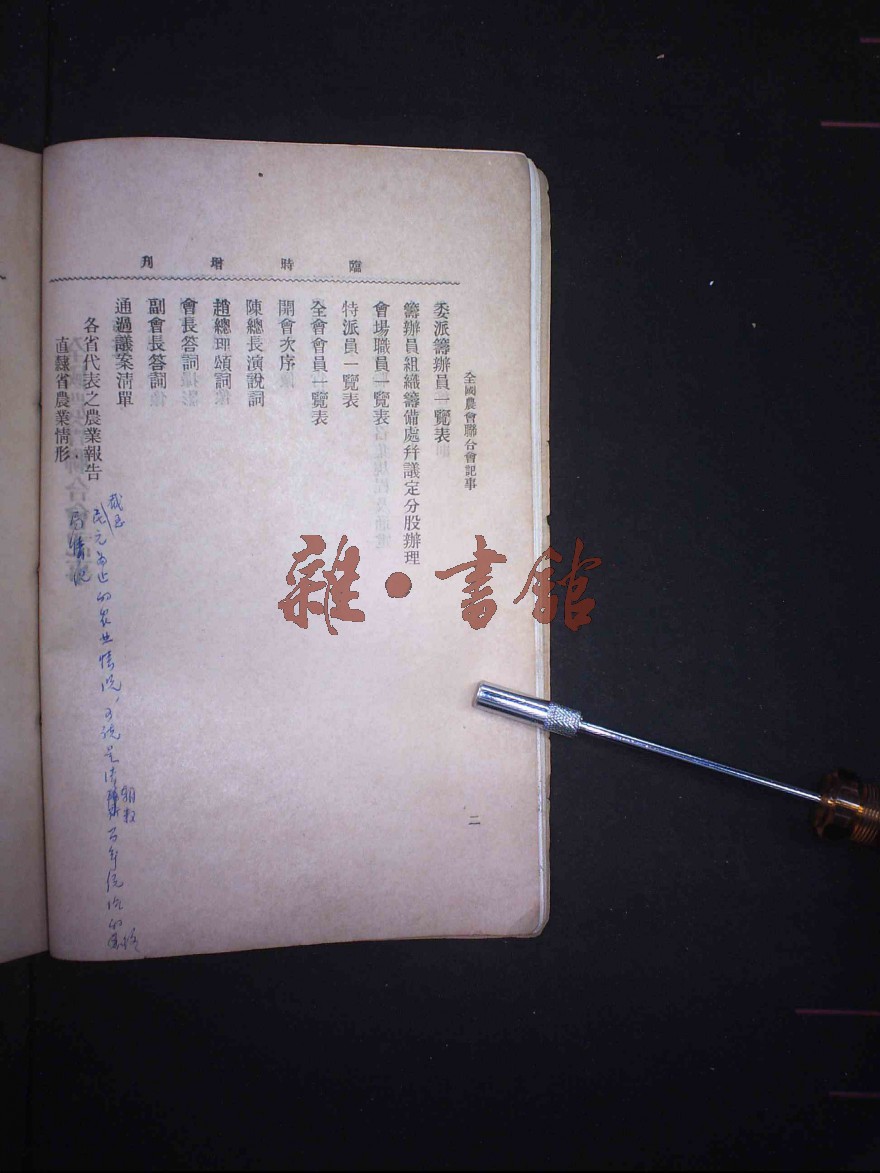 臨時增刊
全國農會聯合會記事
委派籌辦員一覽表
籌辦員組織籌備處幷議定分股辦理
會場職員一覽表
特派員一覽表
全會會員一覽表
開會次序
陳總長演說詞
趙總理頌詞
會長答詞
副會長答詞
通過議案淸單
各省代表之農業報告
直隸省農業情形
截至
民元為止的農業情況，可說是清
百年统治的
二
雜·書館